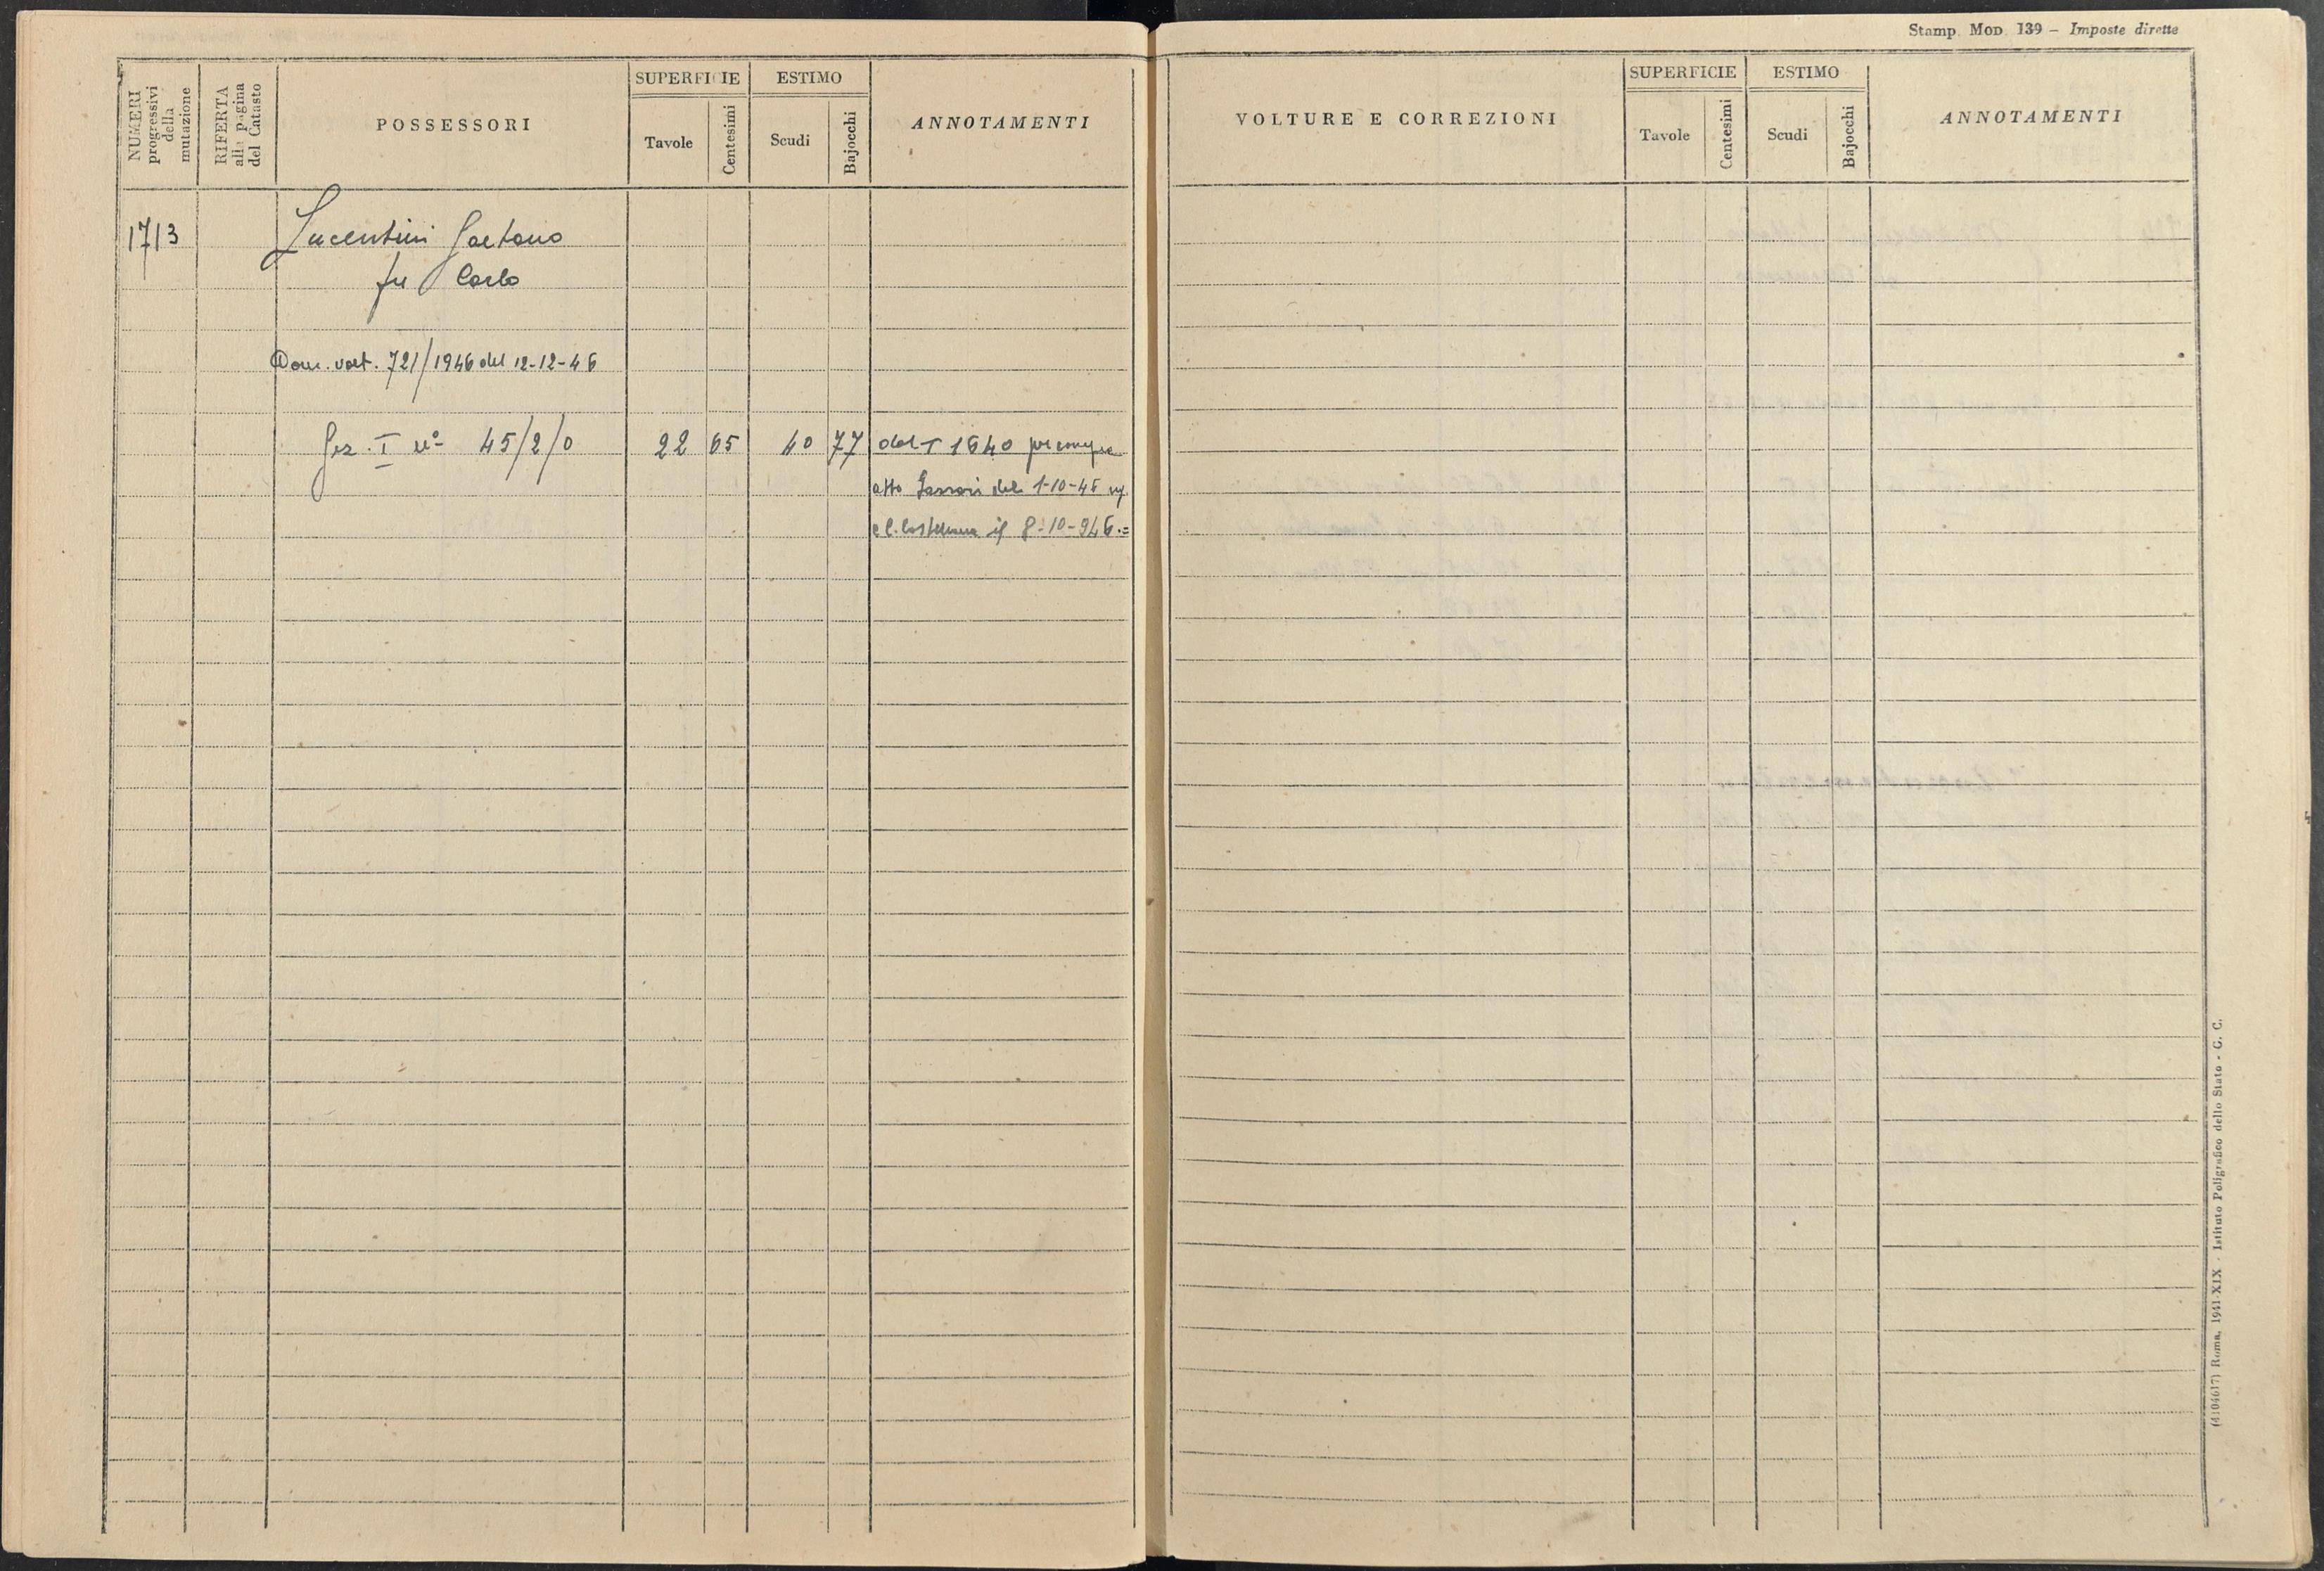 Stamp. Mod 139 – Imposte dirette
NUMERI progressivi della mutazione
RIFERTA alla pagina del Catasto
POSSESSORI
SUPERFICIE
Tavole
Centesimi
ESTIMO
Scudi
Bajocchi
ANNOTAMENTI
VOLTURE E CORREZIONI
SUPERFICIE
Tavole
Centesimi
ESTIMO
Scudi
Bajocchi
ANNOTAMENTI
1713 Lucentini Gaetano
fu Carlo
Dom. volt. 721/1946 del 12-12-46
Sez. I n° 45/2/0 22 65 40 77 dal T 1640 per
atto del 1-10-46
il 8-10-946.=
(4104617) Roma, 1941-XIX - Istituto Poligrafico dello Stato - G. C.